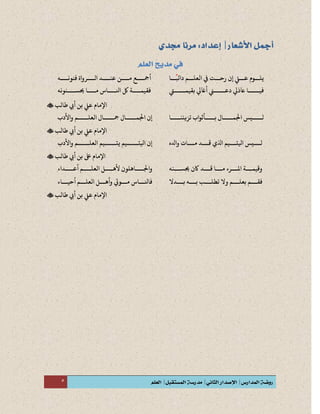 أجمل الأشعار | إعداد، مرنا مجدي
في مديح العلم
يلوم علي إن رحت في العلم دائبا أجمع من عند الرواة فنونه
فيا عاذلي دعني أغالي بقيمتي فقيمة كل الناس ما يحسنونه
الإمام علي بن أبي طالب
ليس الجمال بأثواب تزيننا إن الجمال جمال العلم والأدب
الإمام علي بن أبي طالب
ليس اليتيم الذي قد مات والده إن اليتيم يتيم العلم والأدب
الإمام علي بن أبي طالب
وقيمة المرء ما قد كان يحسنه والجاهلون لأهل العلم أعداء
فقم بعلم ولا تطلب به بدلا فالناس موتى وأهل العلم أحياء
الإمام علي بن أبي طالب
روضة المدارس | الإصدار الثاني | مدرسة المستقبل | العلم